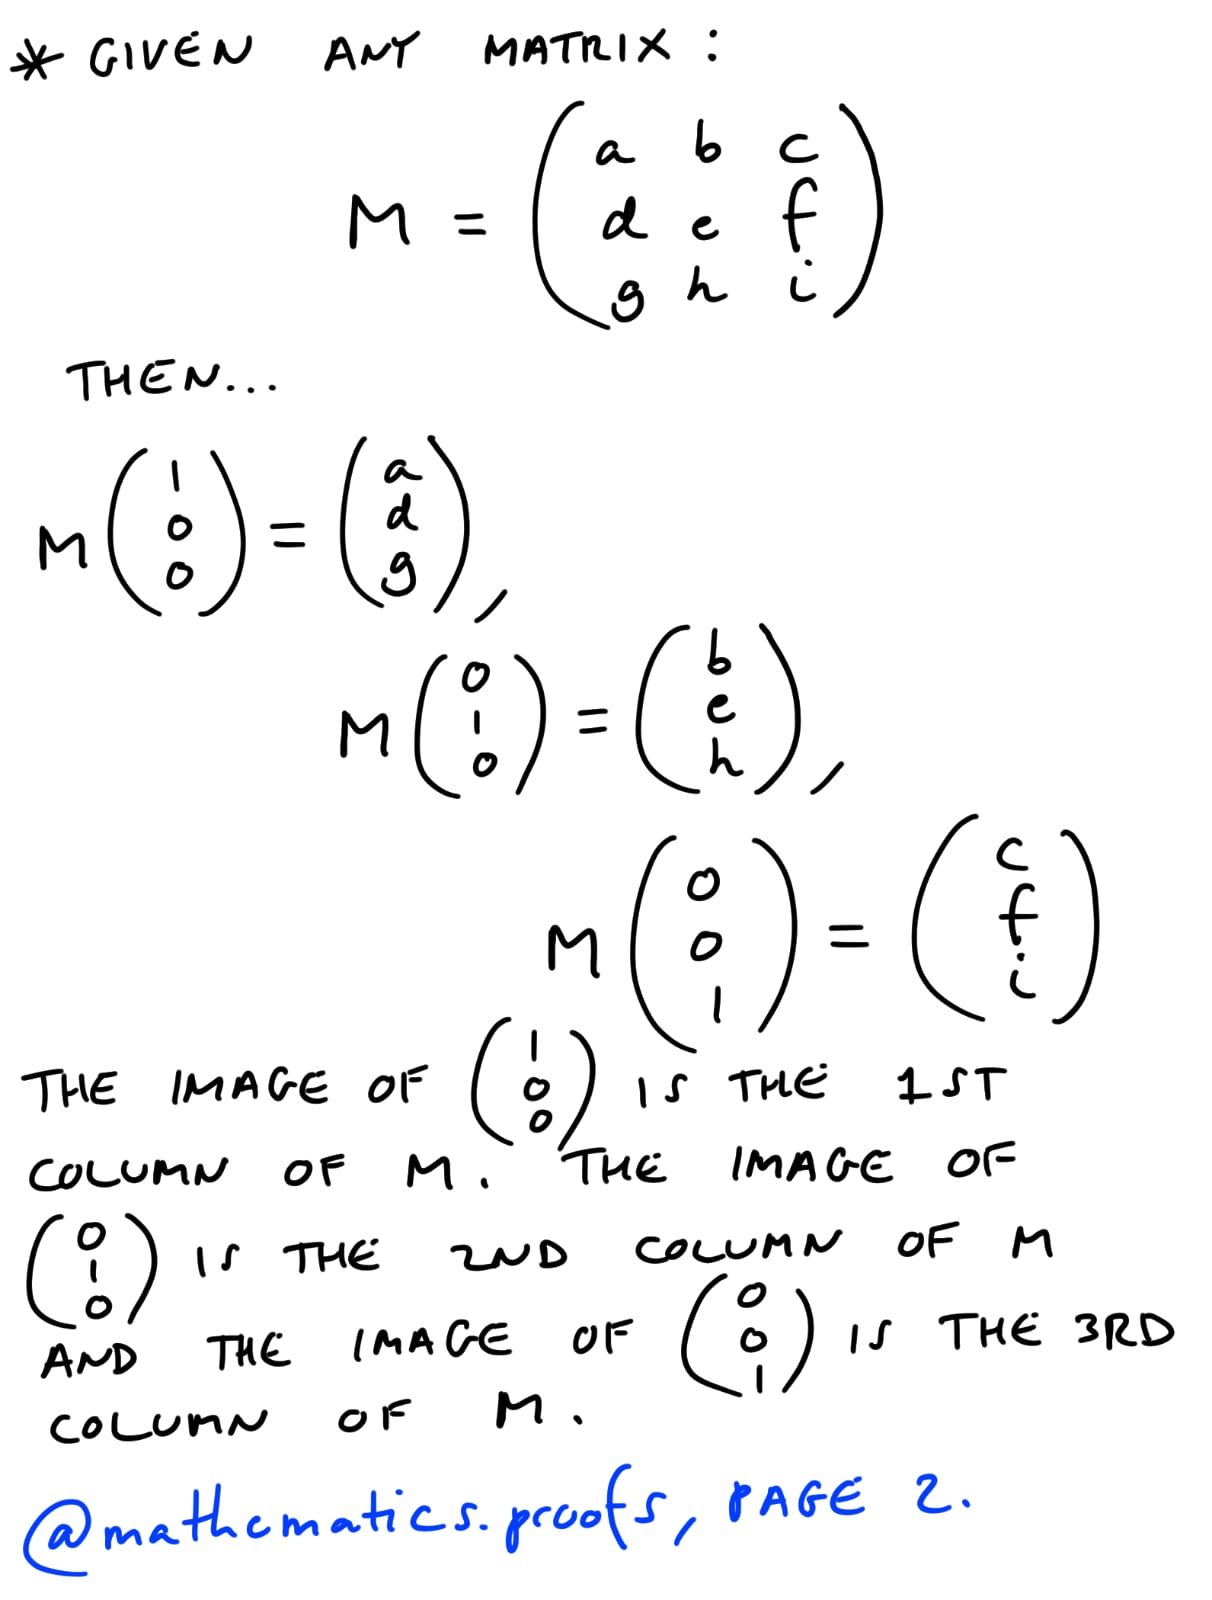 * GIVEN ANY MATRIX:
a b c
M = d e f
g h i
THEN...
M (1 0 0) = (a d g),
M (0 1 0) = (b e h),
M (0 0 1) = (c f i)
THE IMAGE OF (1 0 0) IS THE 1ST
COLUMN OF M. THE IMAGE OF
(0 1 0) IS THE 2ND COLUMN OF M
AND THE IMAGE OF (0 0 1) IS THE 3RD
COLUMN OF M.
@mathematics.proofs, PAGE 2.